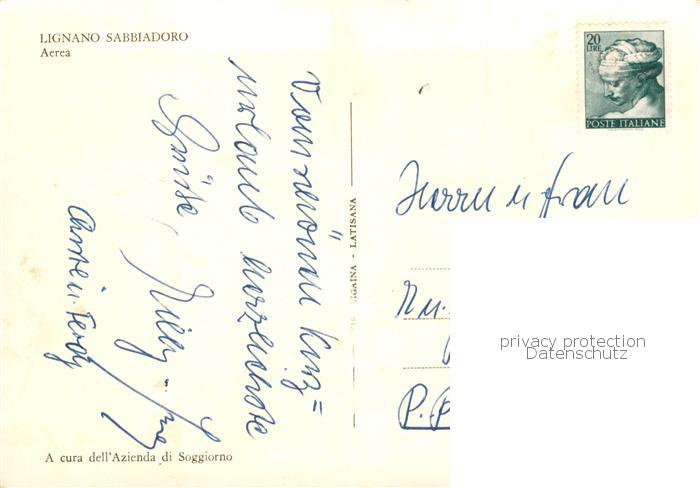 LIGNANO SABBIADORO
Aerea
Vom schönen Kurz=
urlaub herzlichste
Grüße,
Willy u. Inge
u. Ferdy
GAINA - LATISANA
20
LIRE
POSTE ITALIANE
Herrn u Frau
P.
privacy protection
Datenschutz
A cura dell'Azienda di Soggiorno